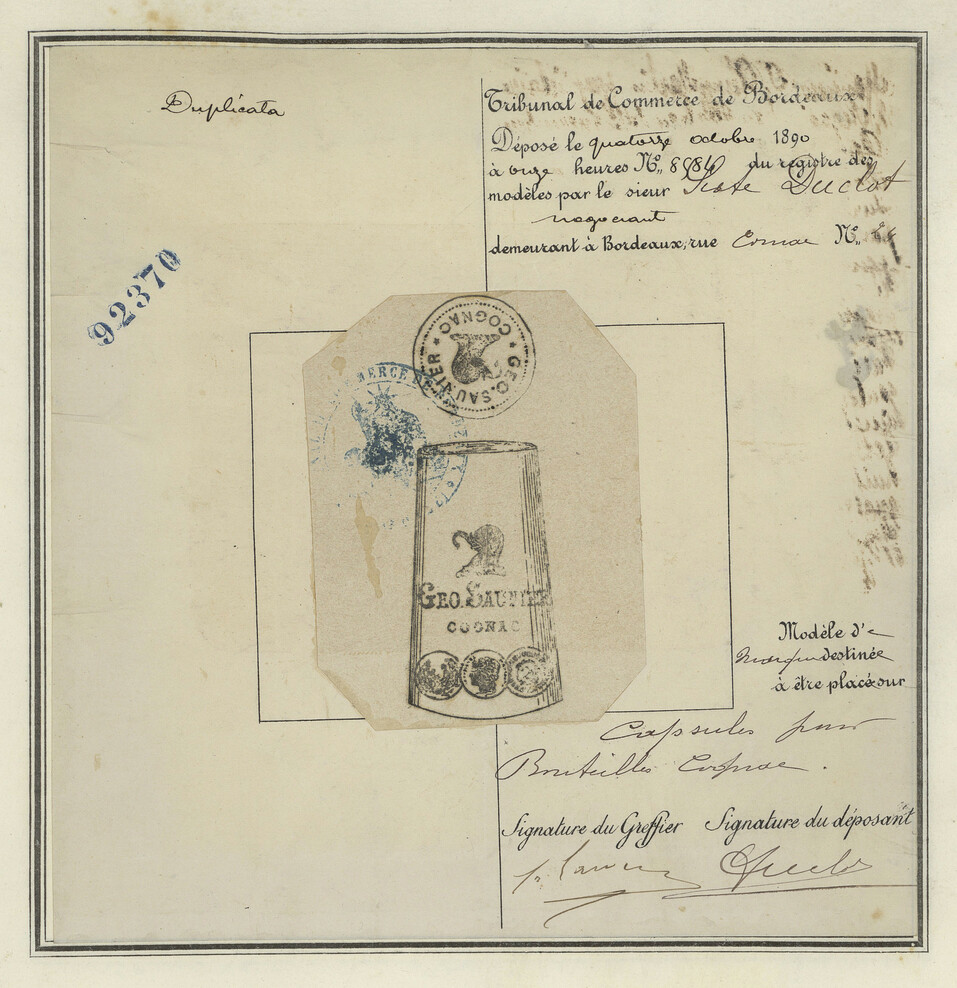 Duplicata
Tribunal de Commerce de Bordeaux
Déposé le quatorze octobre 1890
à onze heures N° du registre des
modèles par le sieur Duclot
negociant
demeurant à Bordeaux, rue N°
92370
GEO. SAUNIER ★ COGNAC ★
GEO. SAUNIER
COGNAC
Modèle de
marque destinée
à être placé sur
Capsules pour
Bouteilles Cognac.
Signature du Greffier Signature du déposant
Duclot